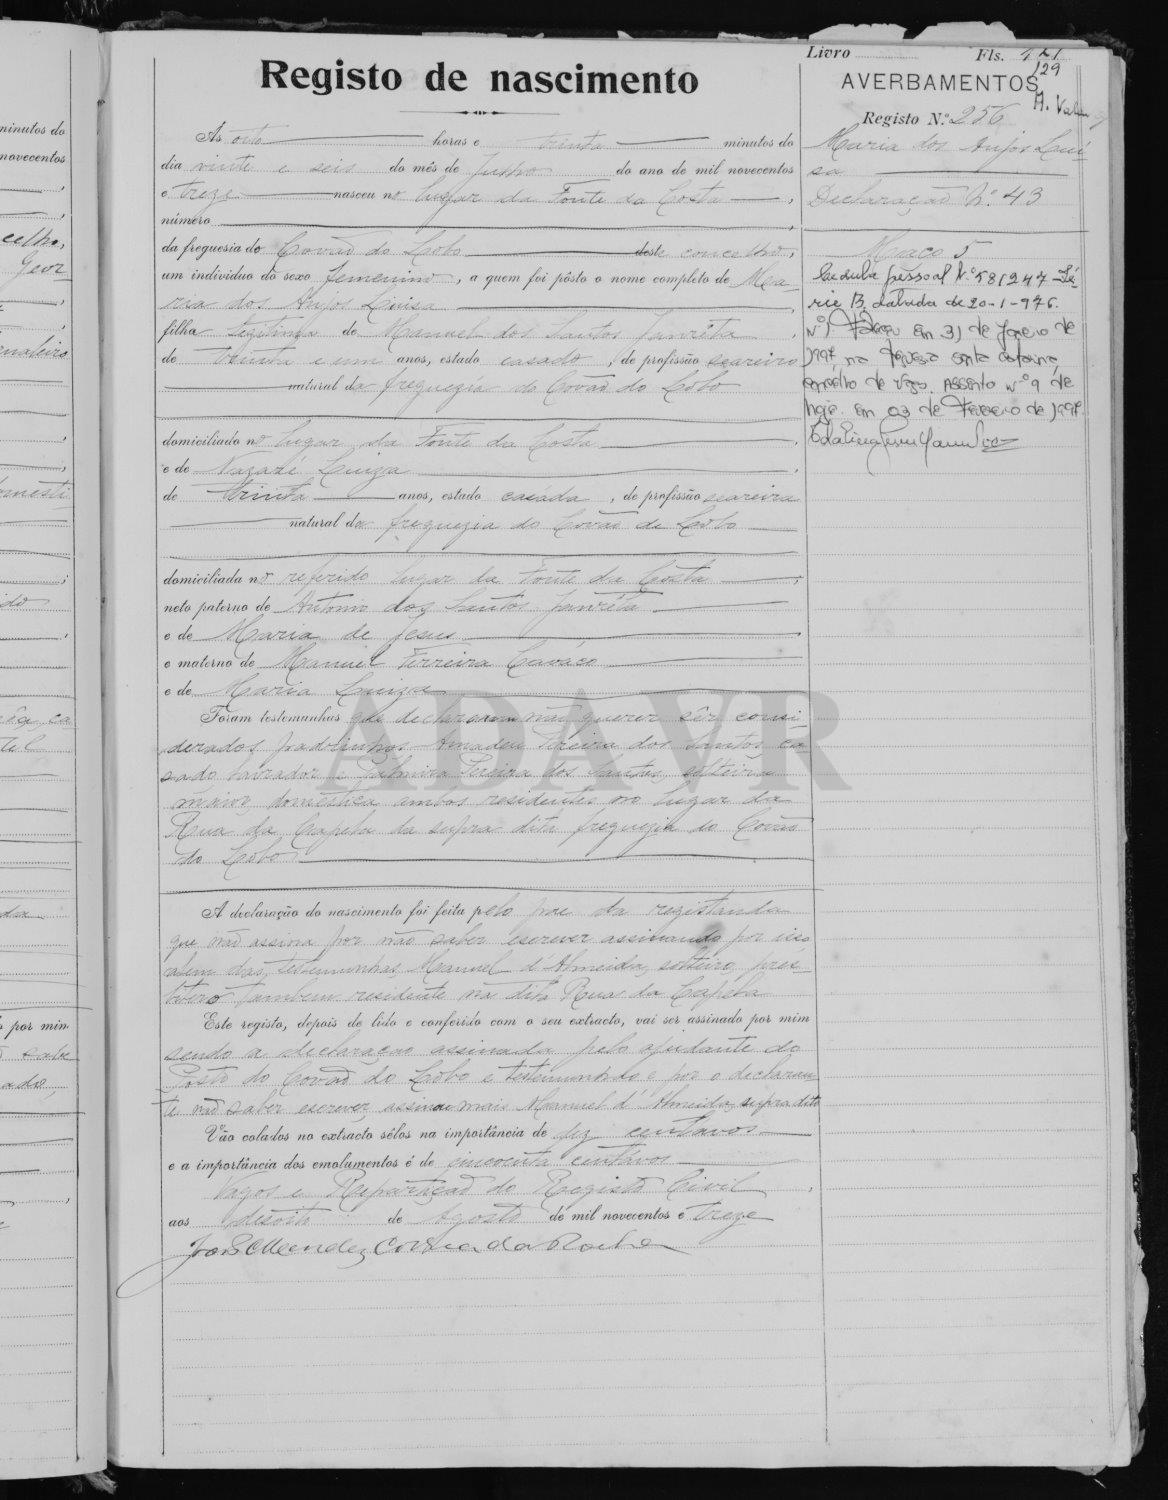 Livro Fls. 121
129
Registo de nascimento
AVERBAMENTOS
Registo N.º 256
Maria dos Anjos Lui-
sa
Declaração N.º 43
Maço 5
Cedula pessoal N.º 581247 Sé-
rie B, datada de 20-1-976.
N.º 1 Faleceu em 31 de Janeiro de
1997, na freguesia Santa Catarina,
concelho de Vagos. Assento n.º 9 de
hoje. Em 03 de Fevereiro de 1997.
Ás oito horas e trinta minutos do
dia vinte e seis do mês de Julho do ano de mil novecentos
e treze nasceu no lugar da Fonte da Costa,
número
da freguesia do Covão do Lobo deste concelho,
um indivíduo do sexo femenino, a quem foi pôsto o nome completo de Ma-
ria dos Anjos Luisa
filha legitima de Manuel dos Santos Janrêta,
de trinta e um anos, estado casado, de profissão seareiro
natural da freguezia do Covão do Lobo
domiciliado no lugar da Fonte da Costa,
e de Nazaré Luiza,
de trinta anos, estado casáda, de profissão seareira
natural da freguezia do Covão do Lobo
domiciliada no referido lugar da Fonte da Costa,
neto paterno de Antonio dos Santos Janrêta
e de Maria de Jesus,
e materno de Manuel Ferreira Caváco
e de Maria Luiza
Foram testemunhas que declararam não querer sêr consi-
derados padrinhos Amadeu Pereira dos Santos, ca-
sado lavrador e Palmira Pereira dos Santos, solteira
maior, domestica ambos residentes no lugar da
Rua da Capela da supra dita freguezia do Covão
do Lobo
A declaração do nascimento foi feita pelo pae da registanda
que não assina por não saber escrever assinando por isso
alem das testemunhas Manuel d'Almeida, solteiro, pres-
bitero tambem residente na dita Rua da Capela
Este registo, depois de lido e conferido com o seu extracto, vai ser assinado por mim
sendo a declaração assinada pelo ajudante do
Posto do Covão do Lobo e testemunhas e por o declaran-
te não saber escrever, assinou mais Manuel d'Almeida, supra dito
Vão colados no extracto sêlos na importância de dez centavos
e a importância dos emolumentos é de cincoenta centávos
Vagos e Repartição do Registo Civil,
aos desoito de Agosto de mil novecentos e treze
ADAVR